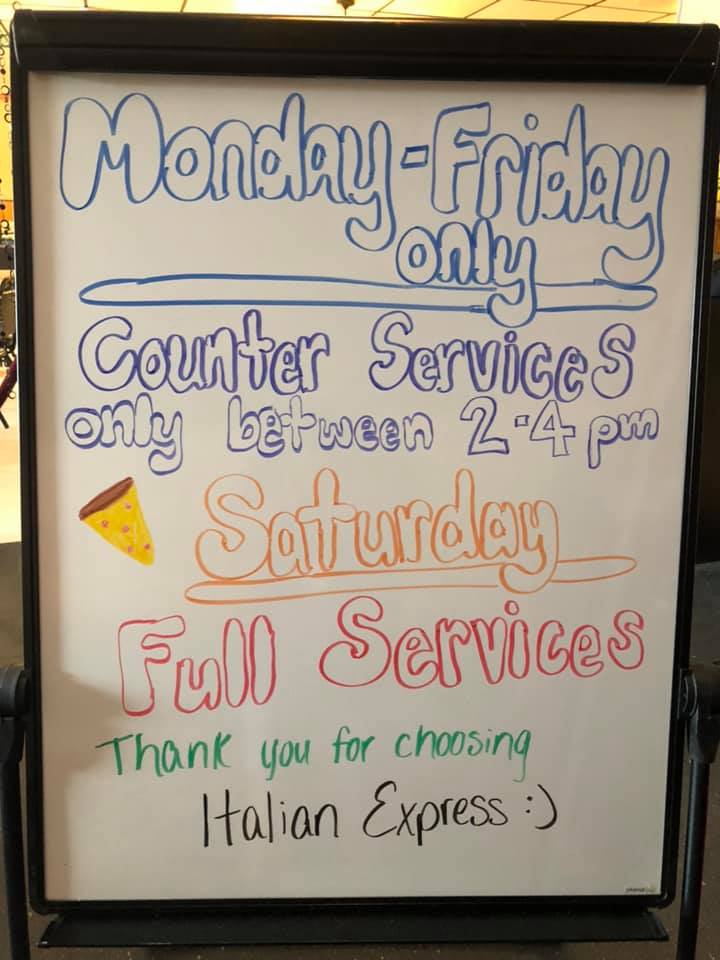 Monday-Friday
only
Counter Services
only between 2-4 pm
Saturday
Full Services
Thank you for choosing
Italian Express :)